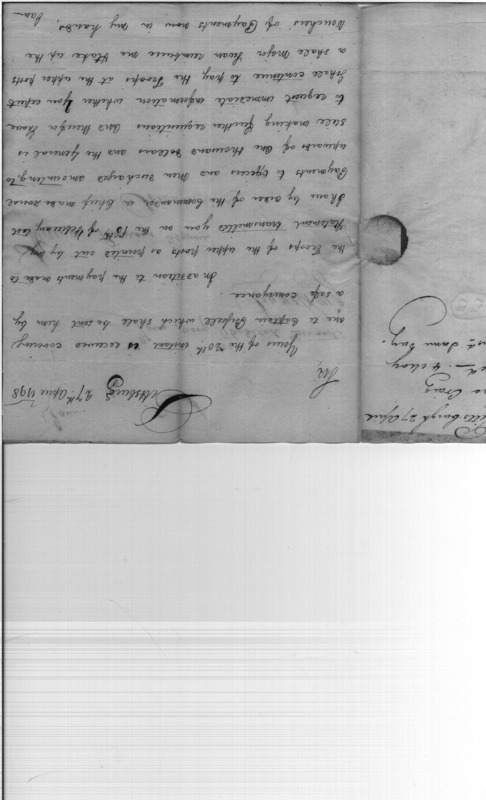 Pittsburg 27th April 1798
Sir,
Yours of the 20th instant is received covering
one to Captain Bissell which shall be sent him by
a safe conveyance
In addition to the payments made to
the Troops of the upper posts as pointed out by my
statement transmitted you on the 13th of February last
I have by order of the Commander in Chief made several
Payments to officers and men discharged amounting to
upwards of One thousand Dollars and the General is
still making further requisitions and therefore have
to request immediate information whether you expect
I shall continue to pay the Troops at the upper posts
or shall Major Swan reimburse me & take up the
Vouchers of Payments now in my hands,
I am
Pittsburgh 27 April
Craig
4 May